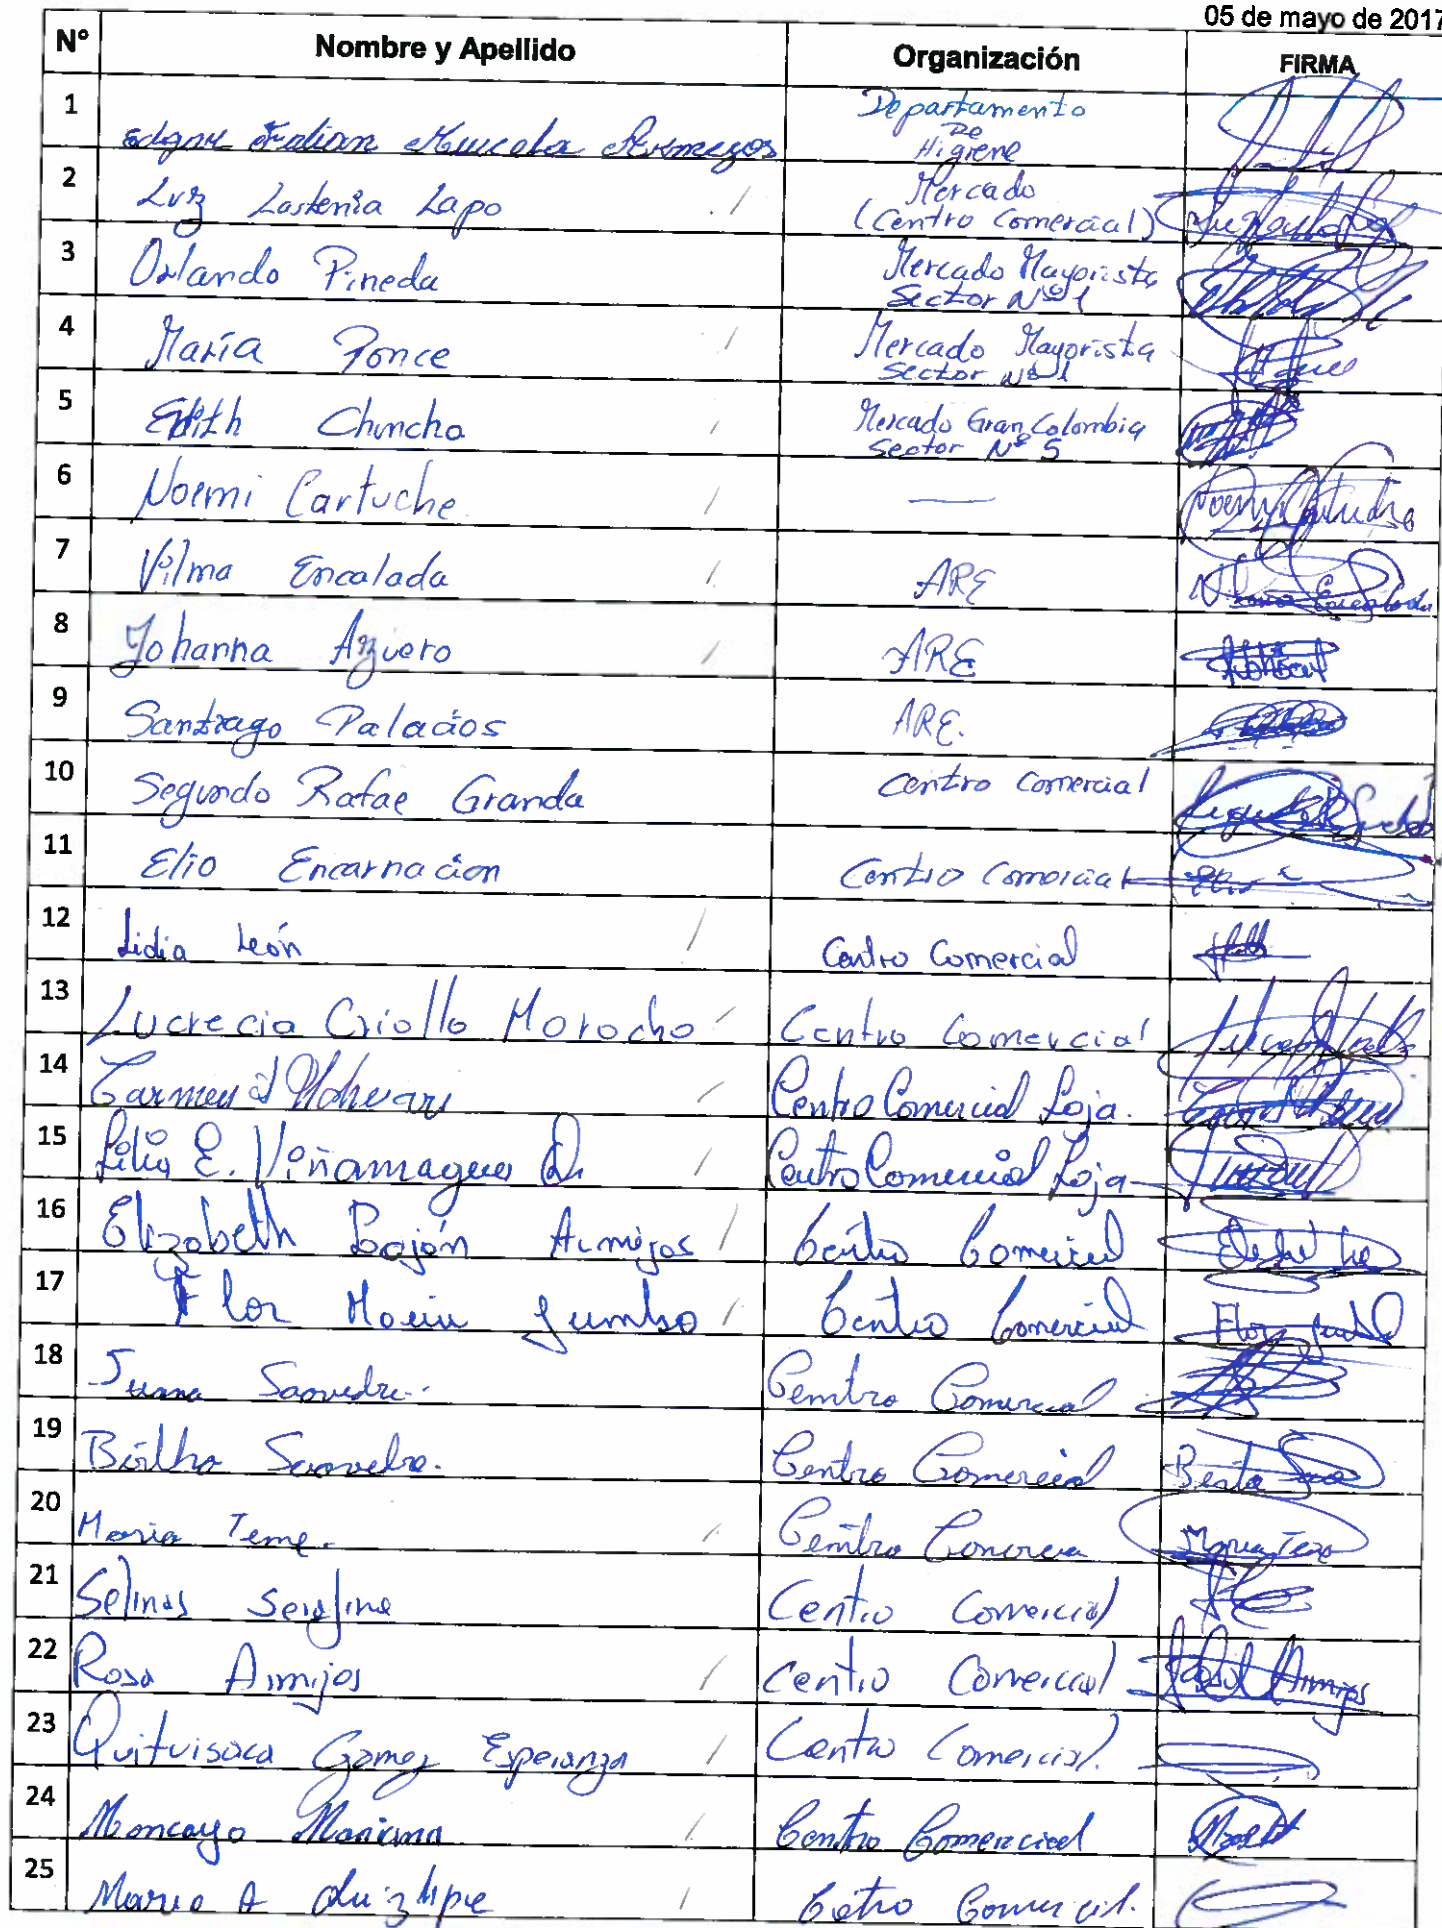 05 de mayo de 2017
N° Nombre y Apellido Organización FIRMA
1 Departamento
De
Higiene
2 Luz Lastenia Lapo Mercado
(Centro Comercial)
3 Orlando Pineda Mercado Mayorista
Sector N° 1
4 María Ponce Mercado Mayorista
Sector N° 1
5 Edith Chuncho Mercado Gran Colombia
Sector N° 5
6 Noemi Cartuche —
7 Vilma Encalada ARE
8 Johanna Azuero ARE
9 Santiago Palacios ARE.
10 Segundo Rafae Granda Centro Comercial
11 Elio Encarnacion Centro Comercial
12 Lidia León Centro Comercial
13 Lucrecia Criollo Morocho Centro Comercial
14 Carmen Centro Comercial Loja.
15 E. Viñamagua Centro Comercial Loja
16 Elizabeth Armijos Centro Comercial
17 Flor Maria Jumbo Centro Comercial Flor
18 Juana Saavedra Centro Comercial
19 Saavedra. Centro Comercial
20 Maria Centro Maria
21 Selinas Serafina Centro Comercial
22 Rosa Armijos Centro Comercial Armijos
23 Quituisaca Gomez Esperanza Centro Comercial.
24 Moncayo Mariana Centro Comercial
25 Centro Comercial.